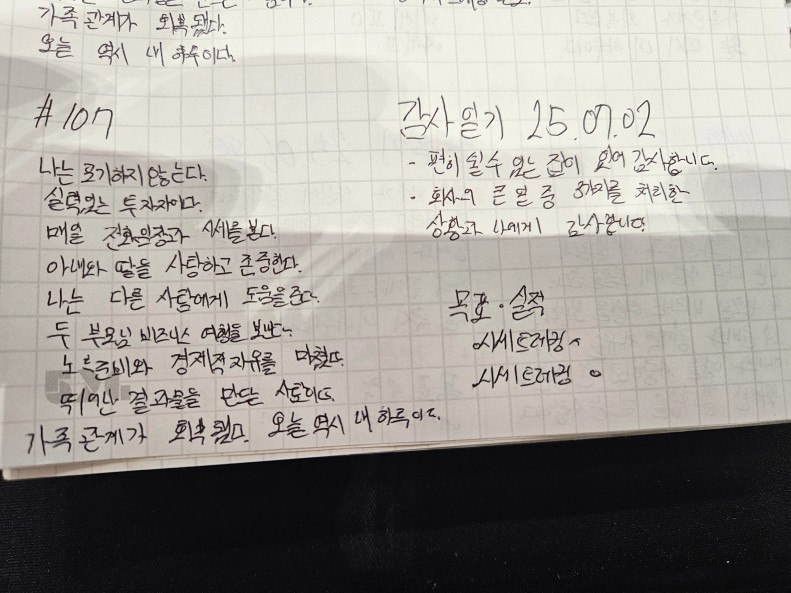 가족관계가 회복됐다.
오늘 역시 내 하루이다.
#107
나는 포기하지 않는다.
실력있는 투자자이다.
매일 전화임장과 시세를 본다.
아내와 딸을 사랑하고 존중한다.
나는 다른 사람에게 도움을 준다.
두 부모님 비즈니스 여행을 보낸다.
노후준비와 경제적 자유를 마쳤다.
뛰어난 결과물을 만든 사람이다.
가족관계가 회복됐다. 오늘 역시 내 하루이다.
감사일기 25.07.02
- 편히 쉴 수 있는 집이 있어 감사합니다.
- 회사의 큰 일 중 3가지를 처리한
상황과 나에게 감사합니다.
목표·실적
시세트래킹
시세트래킹 o